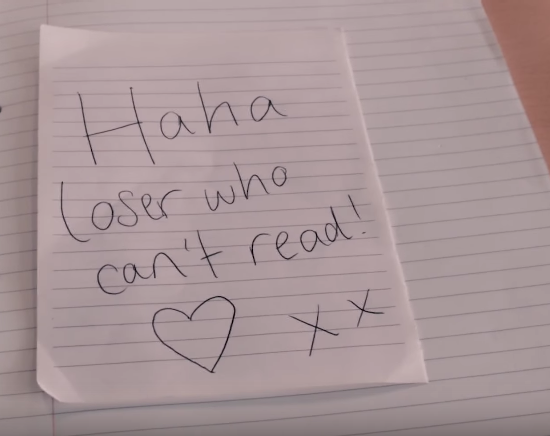 Haha
loser who
can't read!
♡ x x